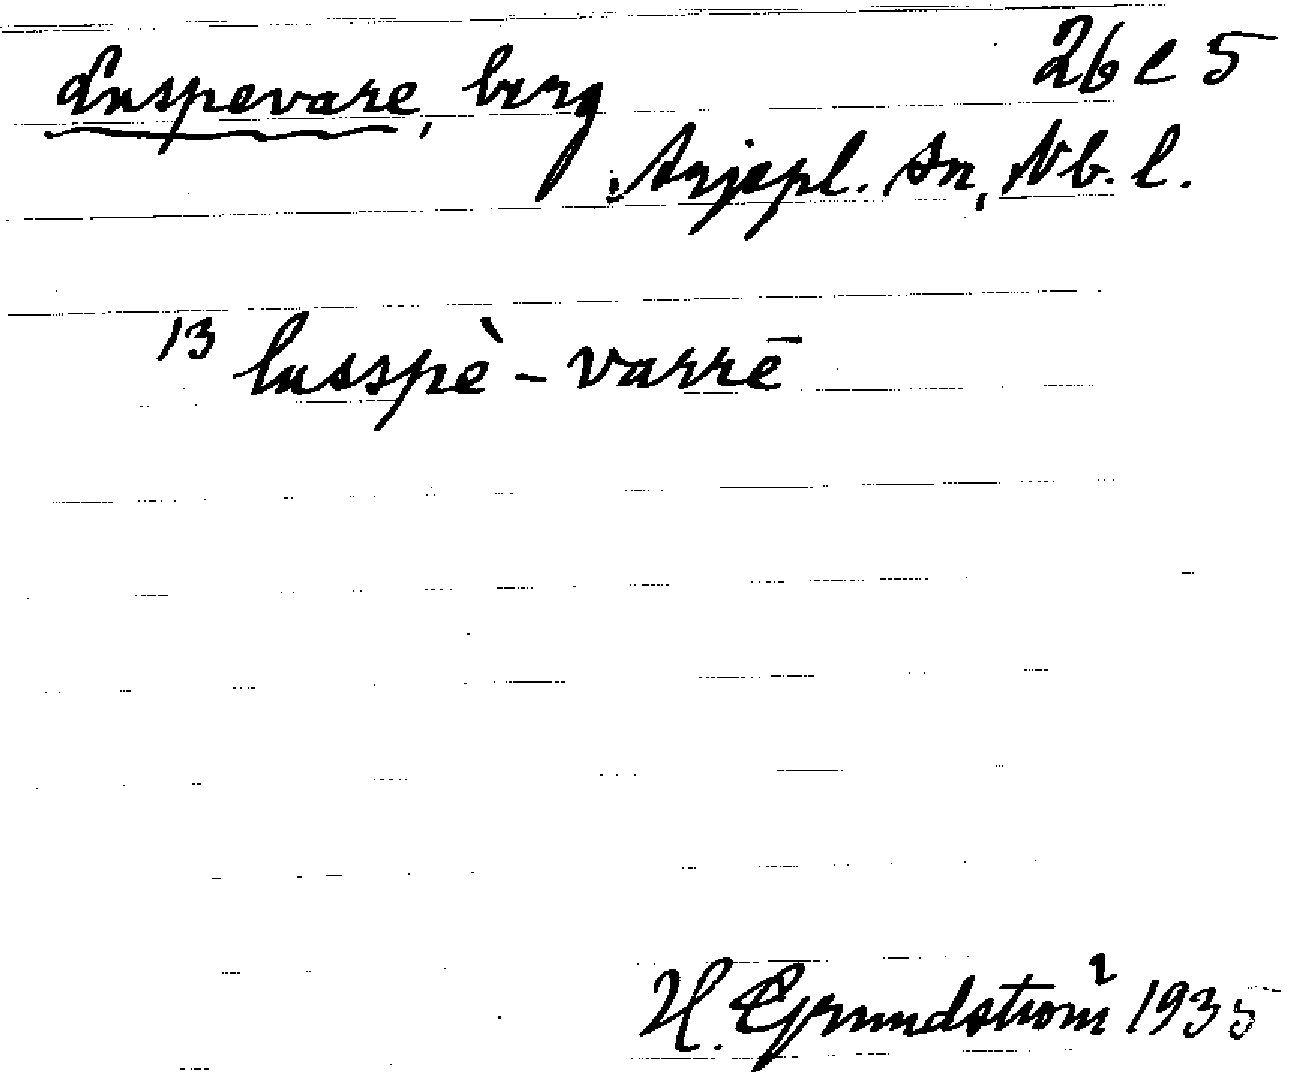 Luspevare, berg 26 l 5
Arjepl. sn, Nb. l.
13 lusspè - varrē
H. Grundström 1935